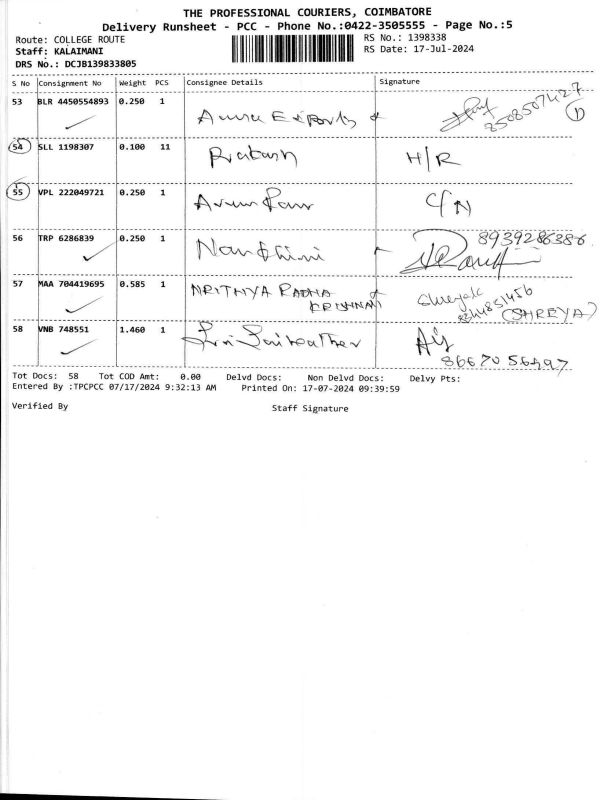 THE PROFESSIONAL COURIERS, COIMBATORE
Delivery Runsheet - PCC - Phone No.:0422-3505555 - Page No.:5
Route: COLLEGE ROUTE RS No.: 1398338
Staff: KALAIMANI RS Date: 17-Jul-2024
DRS No.: DCJB139833805
S No Consignment No Weight PCS Consignee Details Signature
53 BLR 4450554893 0.250 1 Exports
8508507427
1
54 SLL 1198307 0.100 11 Prakash H/R
55 VPL 222049721 0.250 1 C/N
56 TRP 6286839 0.250 1 Nandhini 8939286386
57 MAA 704419695 0.585 1 NRITHYA RADHA
KRISHNAN (SHREYA)
58 VNB 748551 1.460 1 8667056497
Tot Docs: 58 Tot COD Amt: 0.00 Delvd Docs: Non Delvd Docs: Delvy Pts:
Entered By :TPCPCC 07/17/2024 9:32:13 AM Printed On: 17-07-2024 09:39:59
Verified By Staff Signature